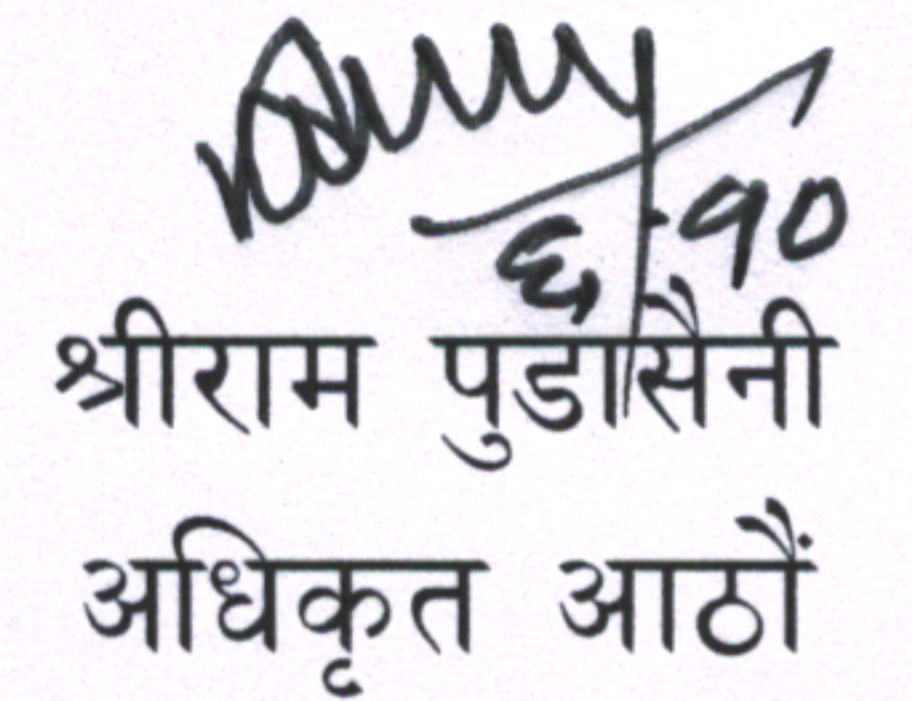 ६-१०
श्रीराम पुडासैनी
अधिकृत आठौं